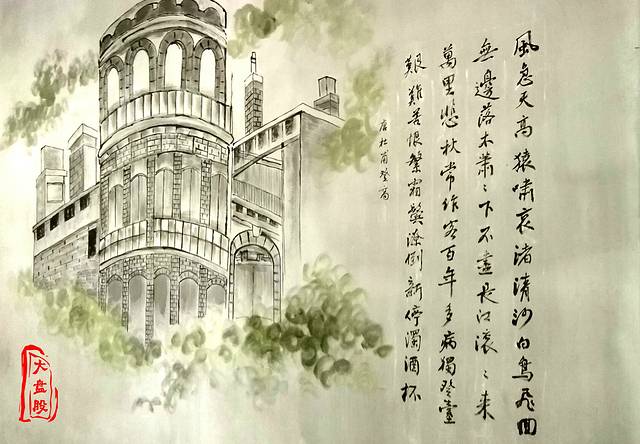 風急天高猿嘯哀渚清沙白鳥飛回
無邊落木蕭〻下不盡長江滾〻来
萬里悲秋常作客百年多病獨登臺
艱難苦恨繁霜鬢潦倒新停濁酒杯
唐杜甫登高
大盘股